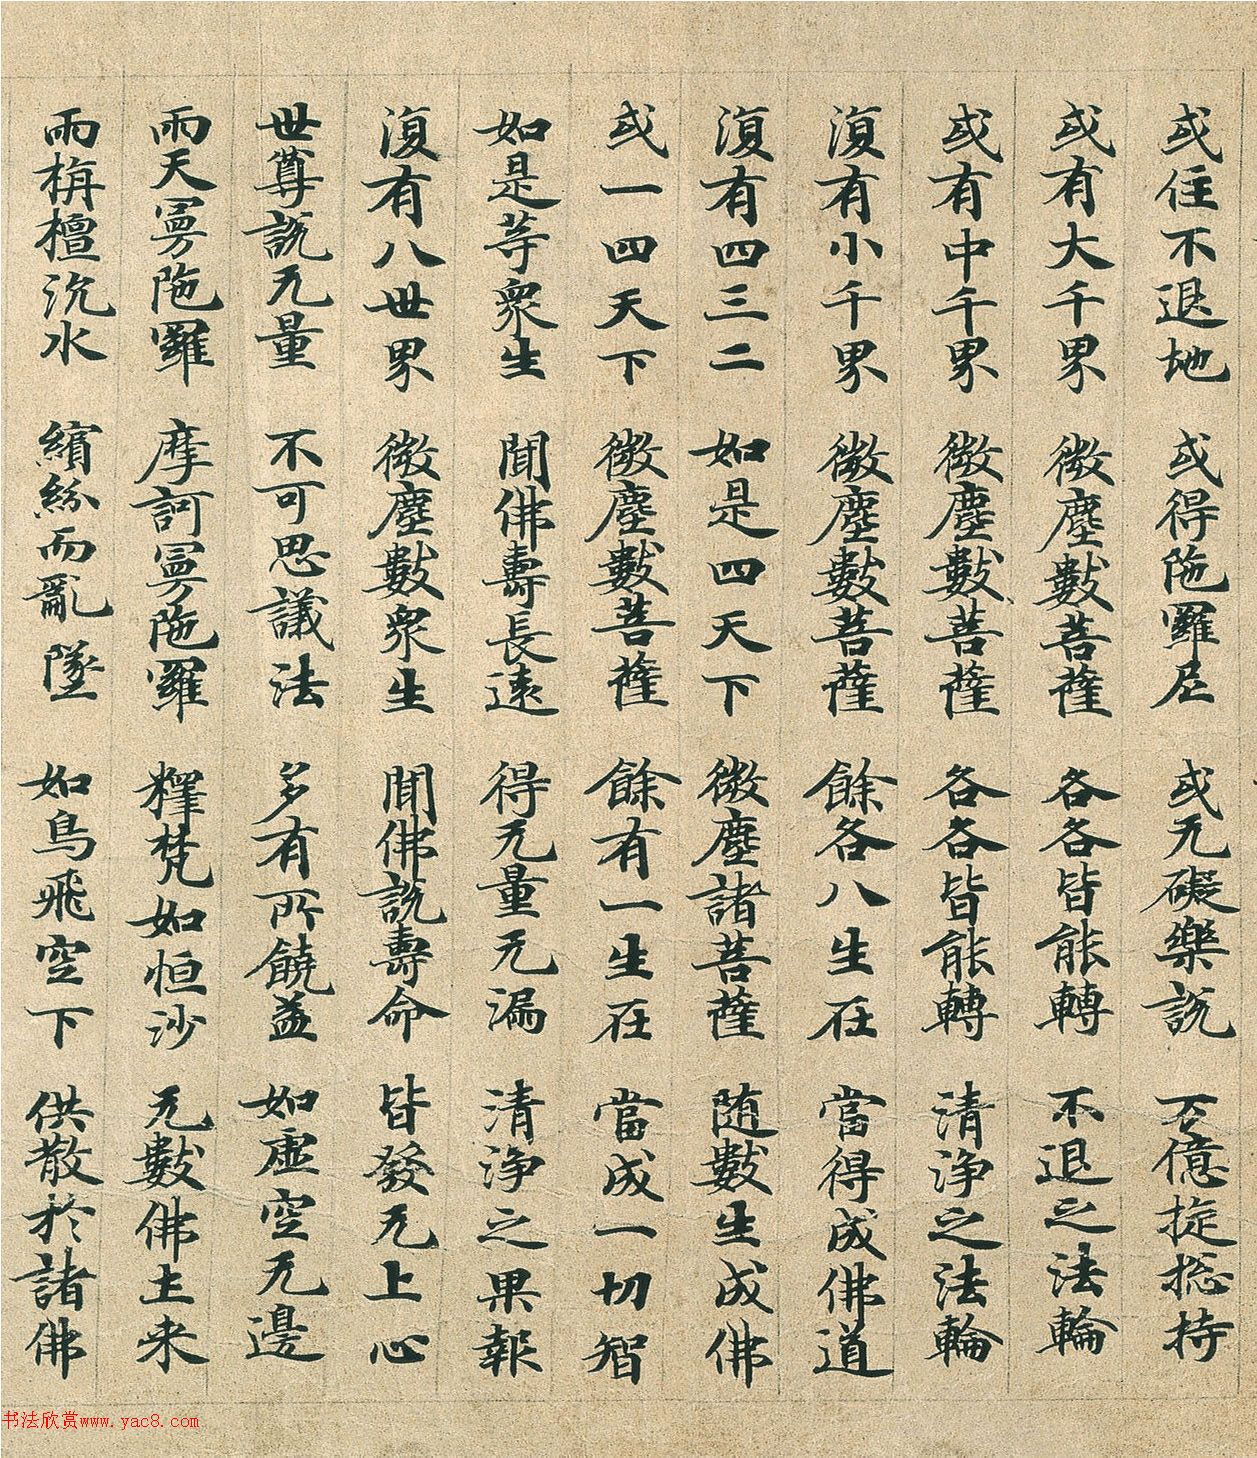 或住不退地 或得陁羅尼 或无礙樂説 万億㨁捴持
或有大千界 微塵數菩薩 各各皆能轉 不退之法輪
或有中千界 微塵數菩薩 各各皆能轉 清淨之法輪
復有小千界 微塵數菩薩 餘各八生在 當得成佛道
復有四三二 如是四天下 微塵諸菩薩 随數生成佛
或一四天下 微塵數菩薩 餘有一生在 當成一切智
如是等衆生 聞佛壽長遠 得无量无漏 清淨之果報
復有八世界 微塵數衆生 聞佛説壽命 皆發无上心
世尊説无量 不可思議法 多有所饒益 如虛空无邊
雨天曼陁羅 摩訶曼陁羅 釋梵如恒沙 无數佛土来
雨栴檀沉水 繽紛而亂墜 如鳥飛空下 供散於諸佛
书法欣赏www.yac8.com